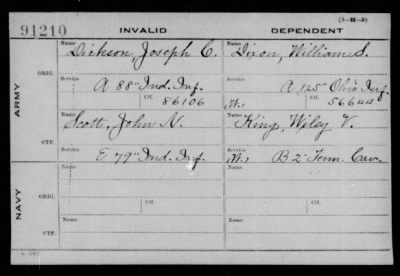 (3-H-3)
91210 INVALID DEPENDENT
ARMY
ORIG.
Name Dickson, Joseph C. Name Dixon, William S.
Service A 88" Ind. Inf. Service A, 125" Ohio Inf.
Ctf. 86106 W. Ctf. 56644
CTF.
Name Scott, John N. Name King, Wiley V.
Service E 79" Ind. Inf. Service W. B 2" Tenn. Cav.
NAVY
ORIG.
Name Name
Service Ctf. Service Ctf.
CTF.
Name Name